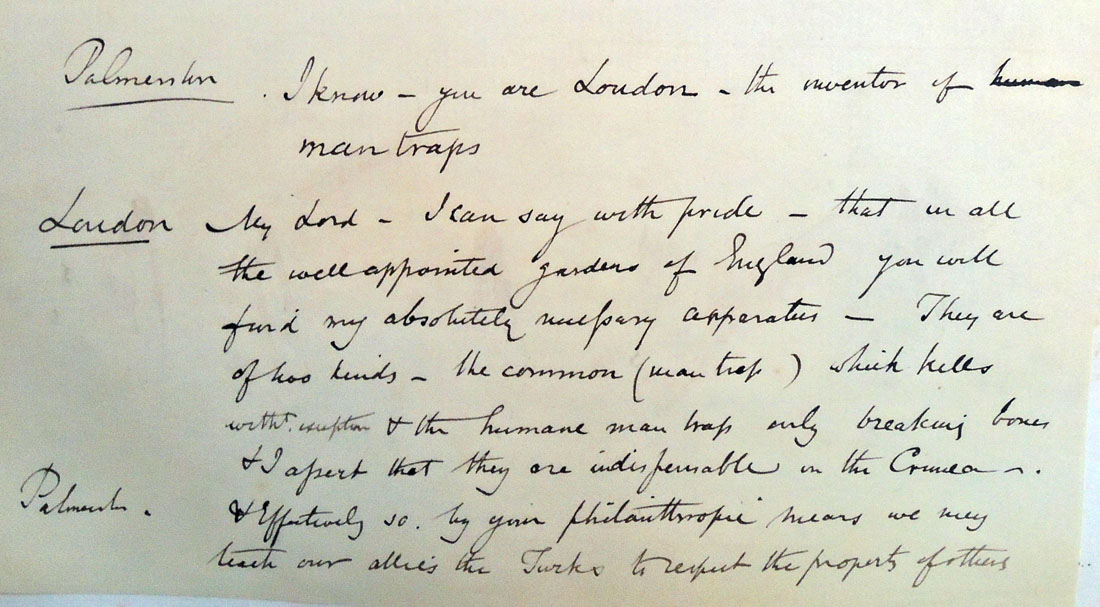 Palmerston . I know – you are Loudon – the inventor of human
man traps
Loudon My Lord – I can say with pride – that in all
the well appointed gardens of England you will
find my absolutely necessary apparatus – They are
of two kinds – the common (man trap) which kills
witht. exception & the humane man trap only breaking bones
& I assert that they are indispensable in the Crimea – .
Palmerstn . & Effectively so. by your philanthropic means we may
teach our allies the Turks to respect the property of others